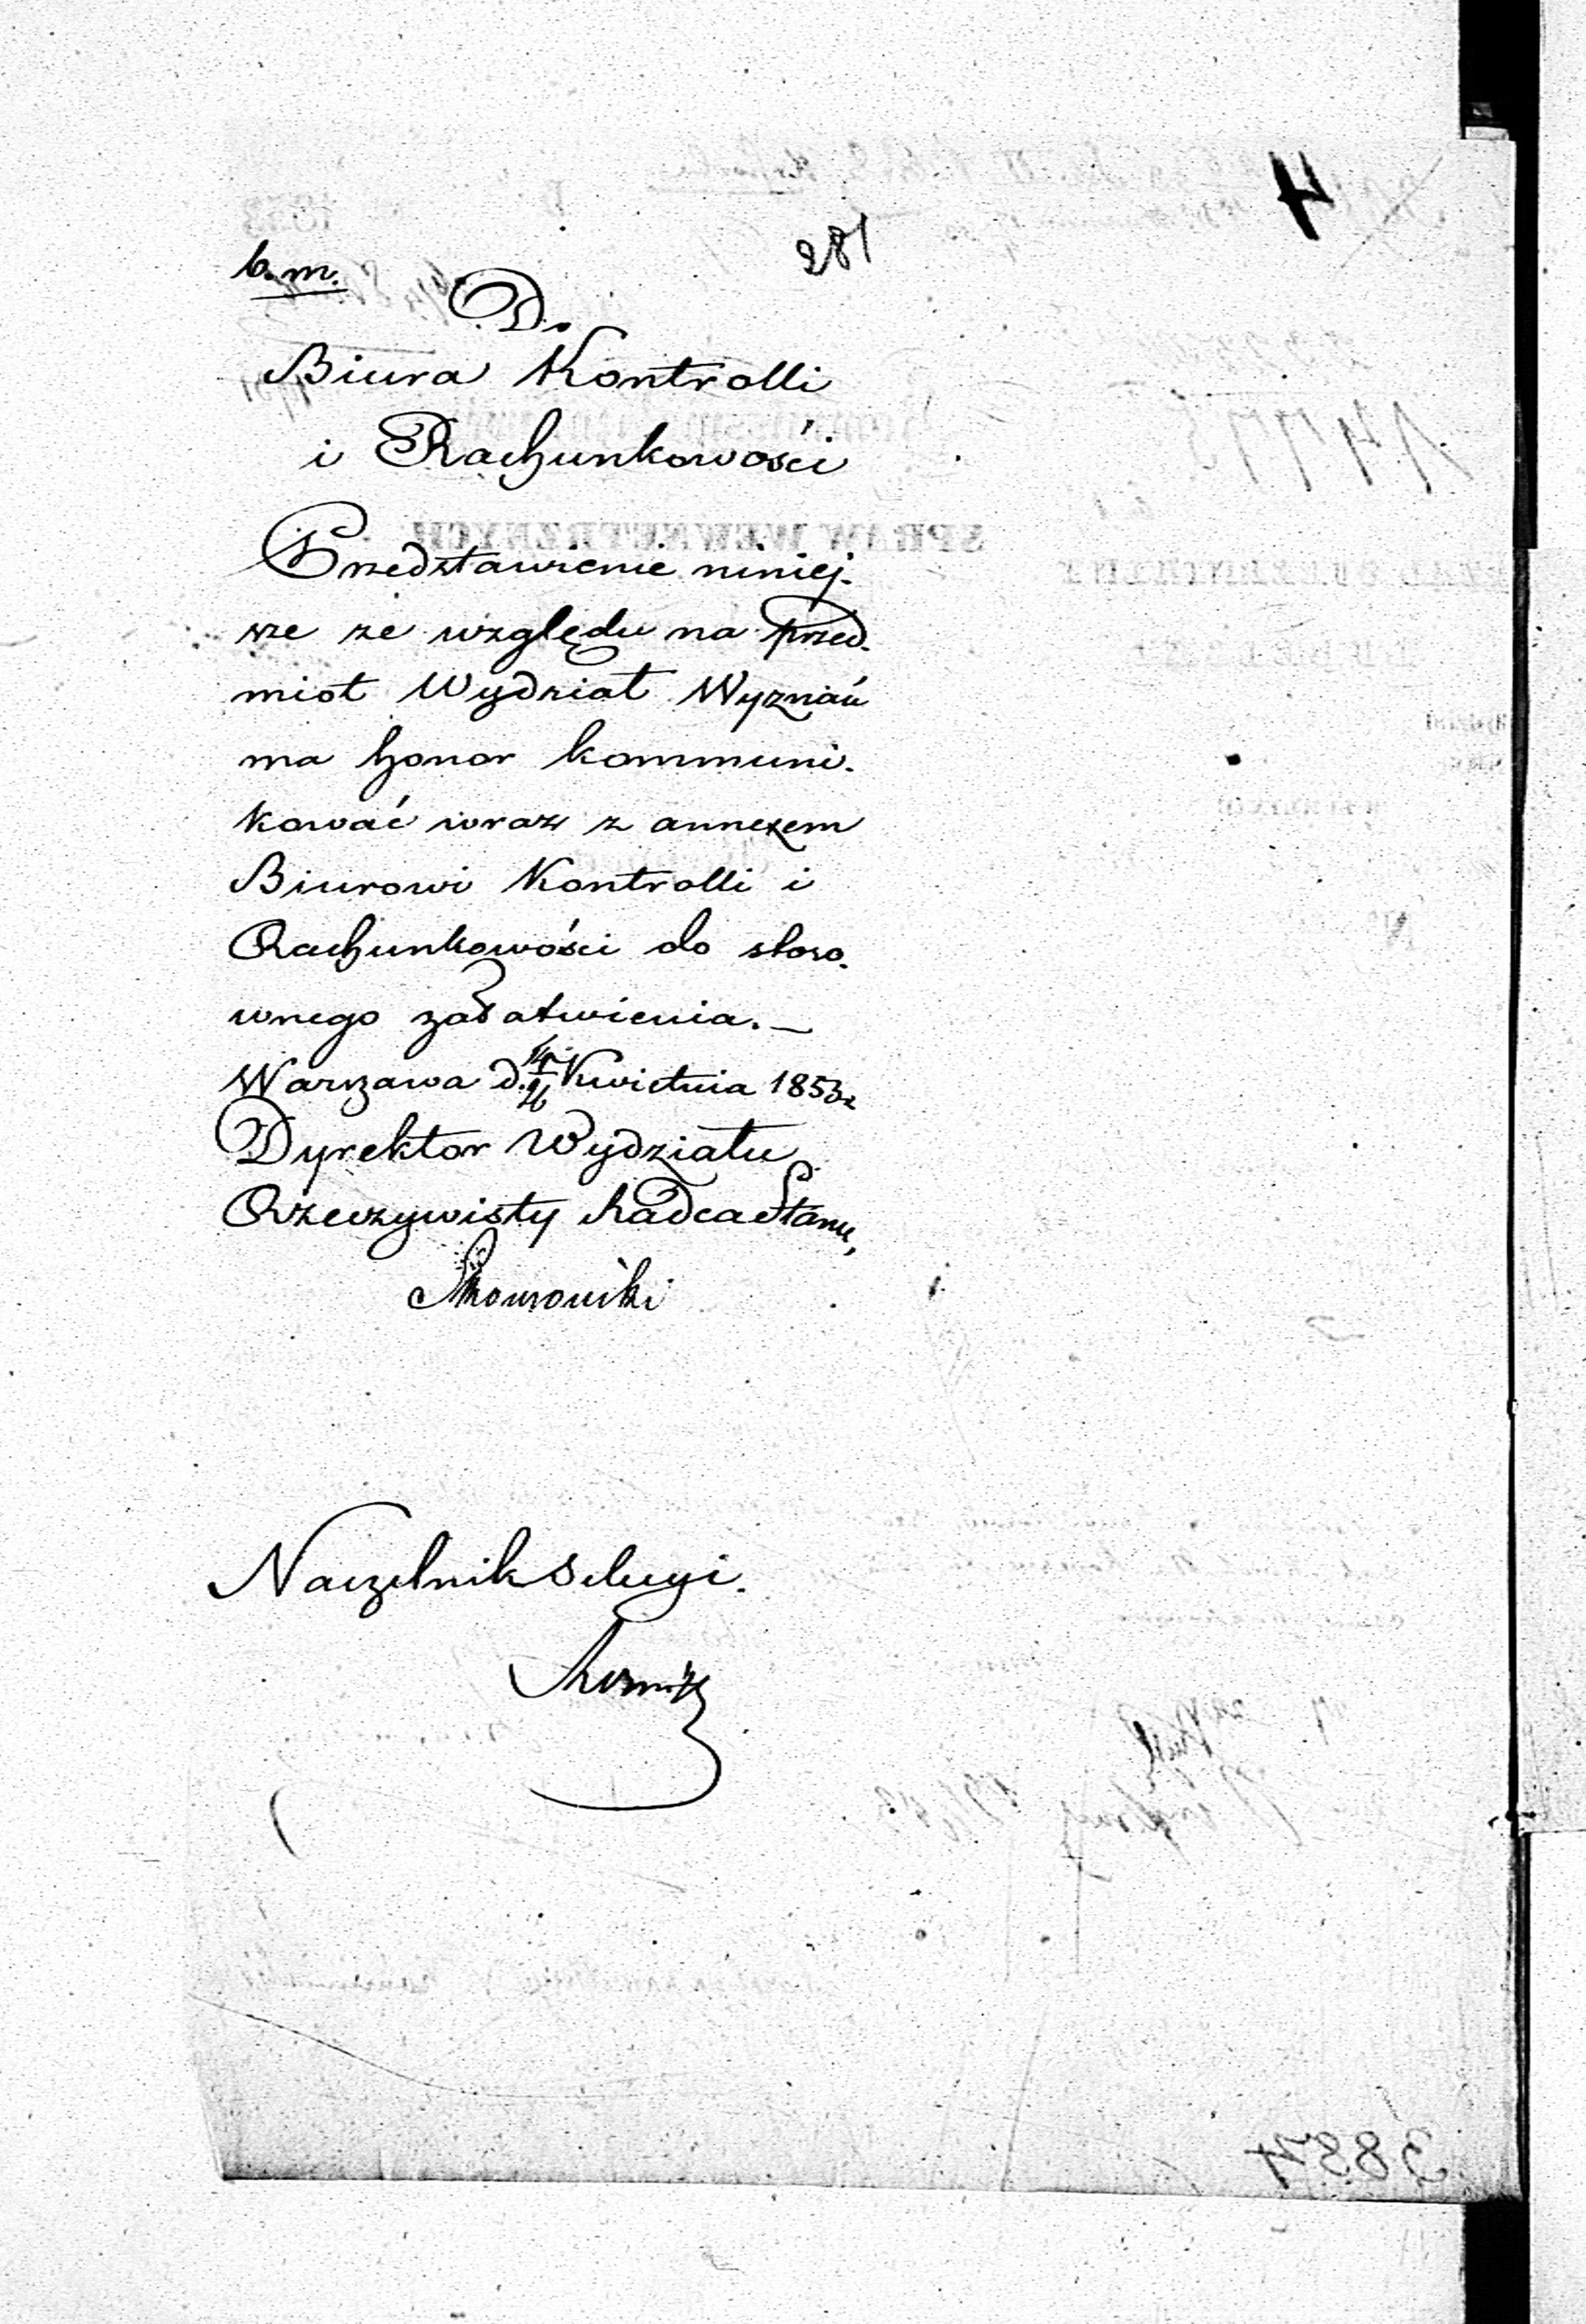 4
281
b. m.
Do
Biura Kontrolli
i Rachunkowości
Przedstawienie niniej-
sze ze względu na przed-
miot Wydział Wyznań
ma honor kommuni-
kować wraz z annexem
Biurowi Kontrolli i
Rachunkowości do stoso-
wnego załatwienia. —
Warszawa d. 14/26 Kwietnia 1853 r.
Dyrektor Wydziału
Rzeczywisty Radca Stanu,
Naczelnik Sekcyi.
SPRAW WEWNĘTRZNYCH
3884